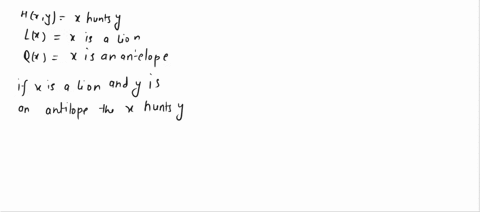 H(x,y) = x hunts y
L(x) = x is a lion
Q(x) = x is an anelope
if x is a lion and y is
an antilope the x hunts y